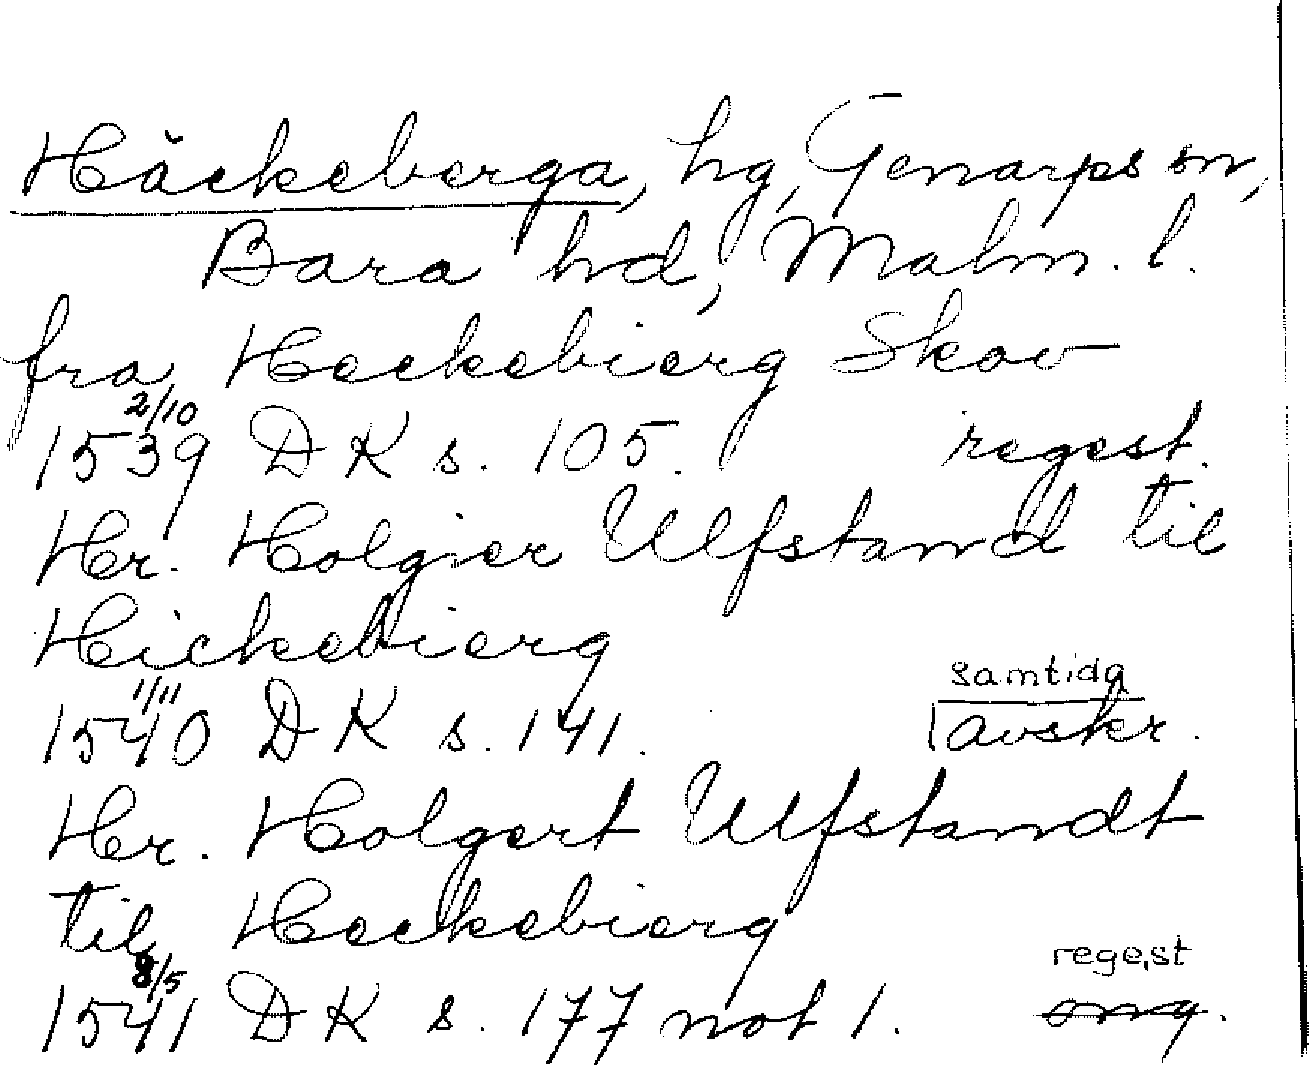 Häckeberga, hg, Genarps sn,
Bara hd, Malm. l.
fra Heckebierg Skov
2/10
1539 DK s. 105. regest.
Hr. Holgier Ulfstand til
Hickebierg
1/11 samtida
1540 DK s. 141. avskr.
Hr. Holgert Ulfstandt
til Heckebierg
8/5 regest
1541 DK s. 177 not 1.